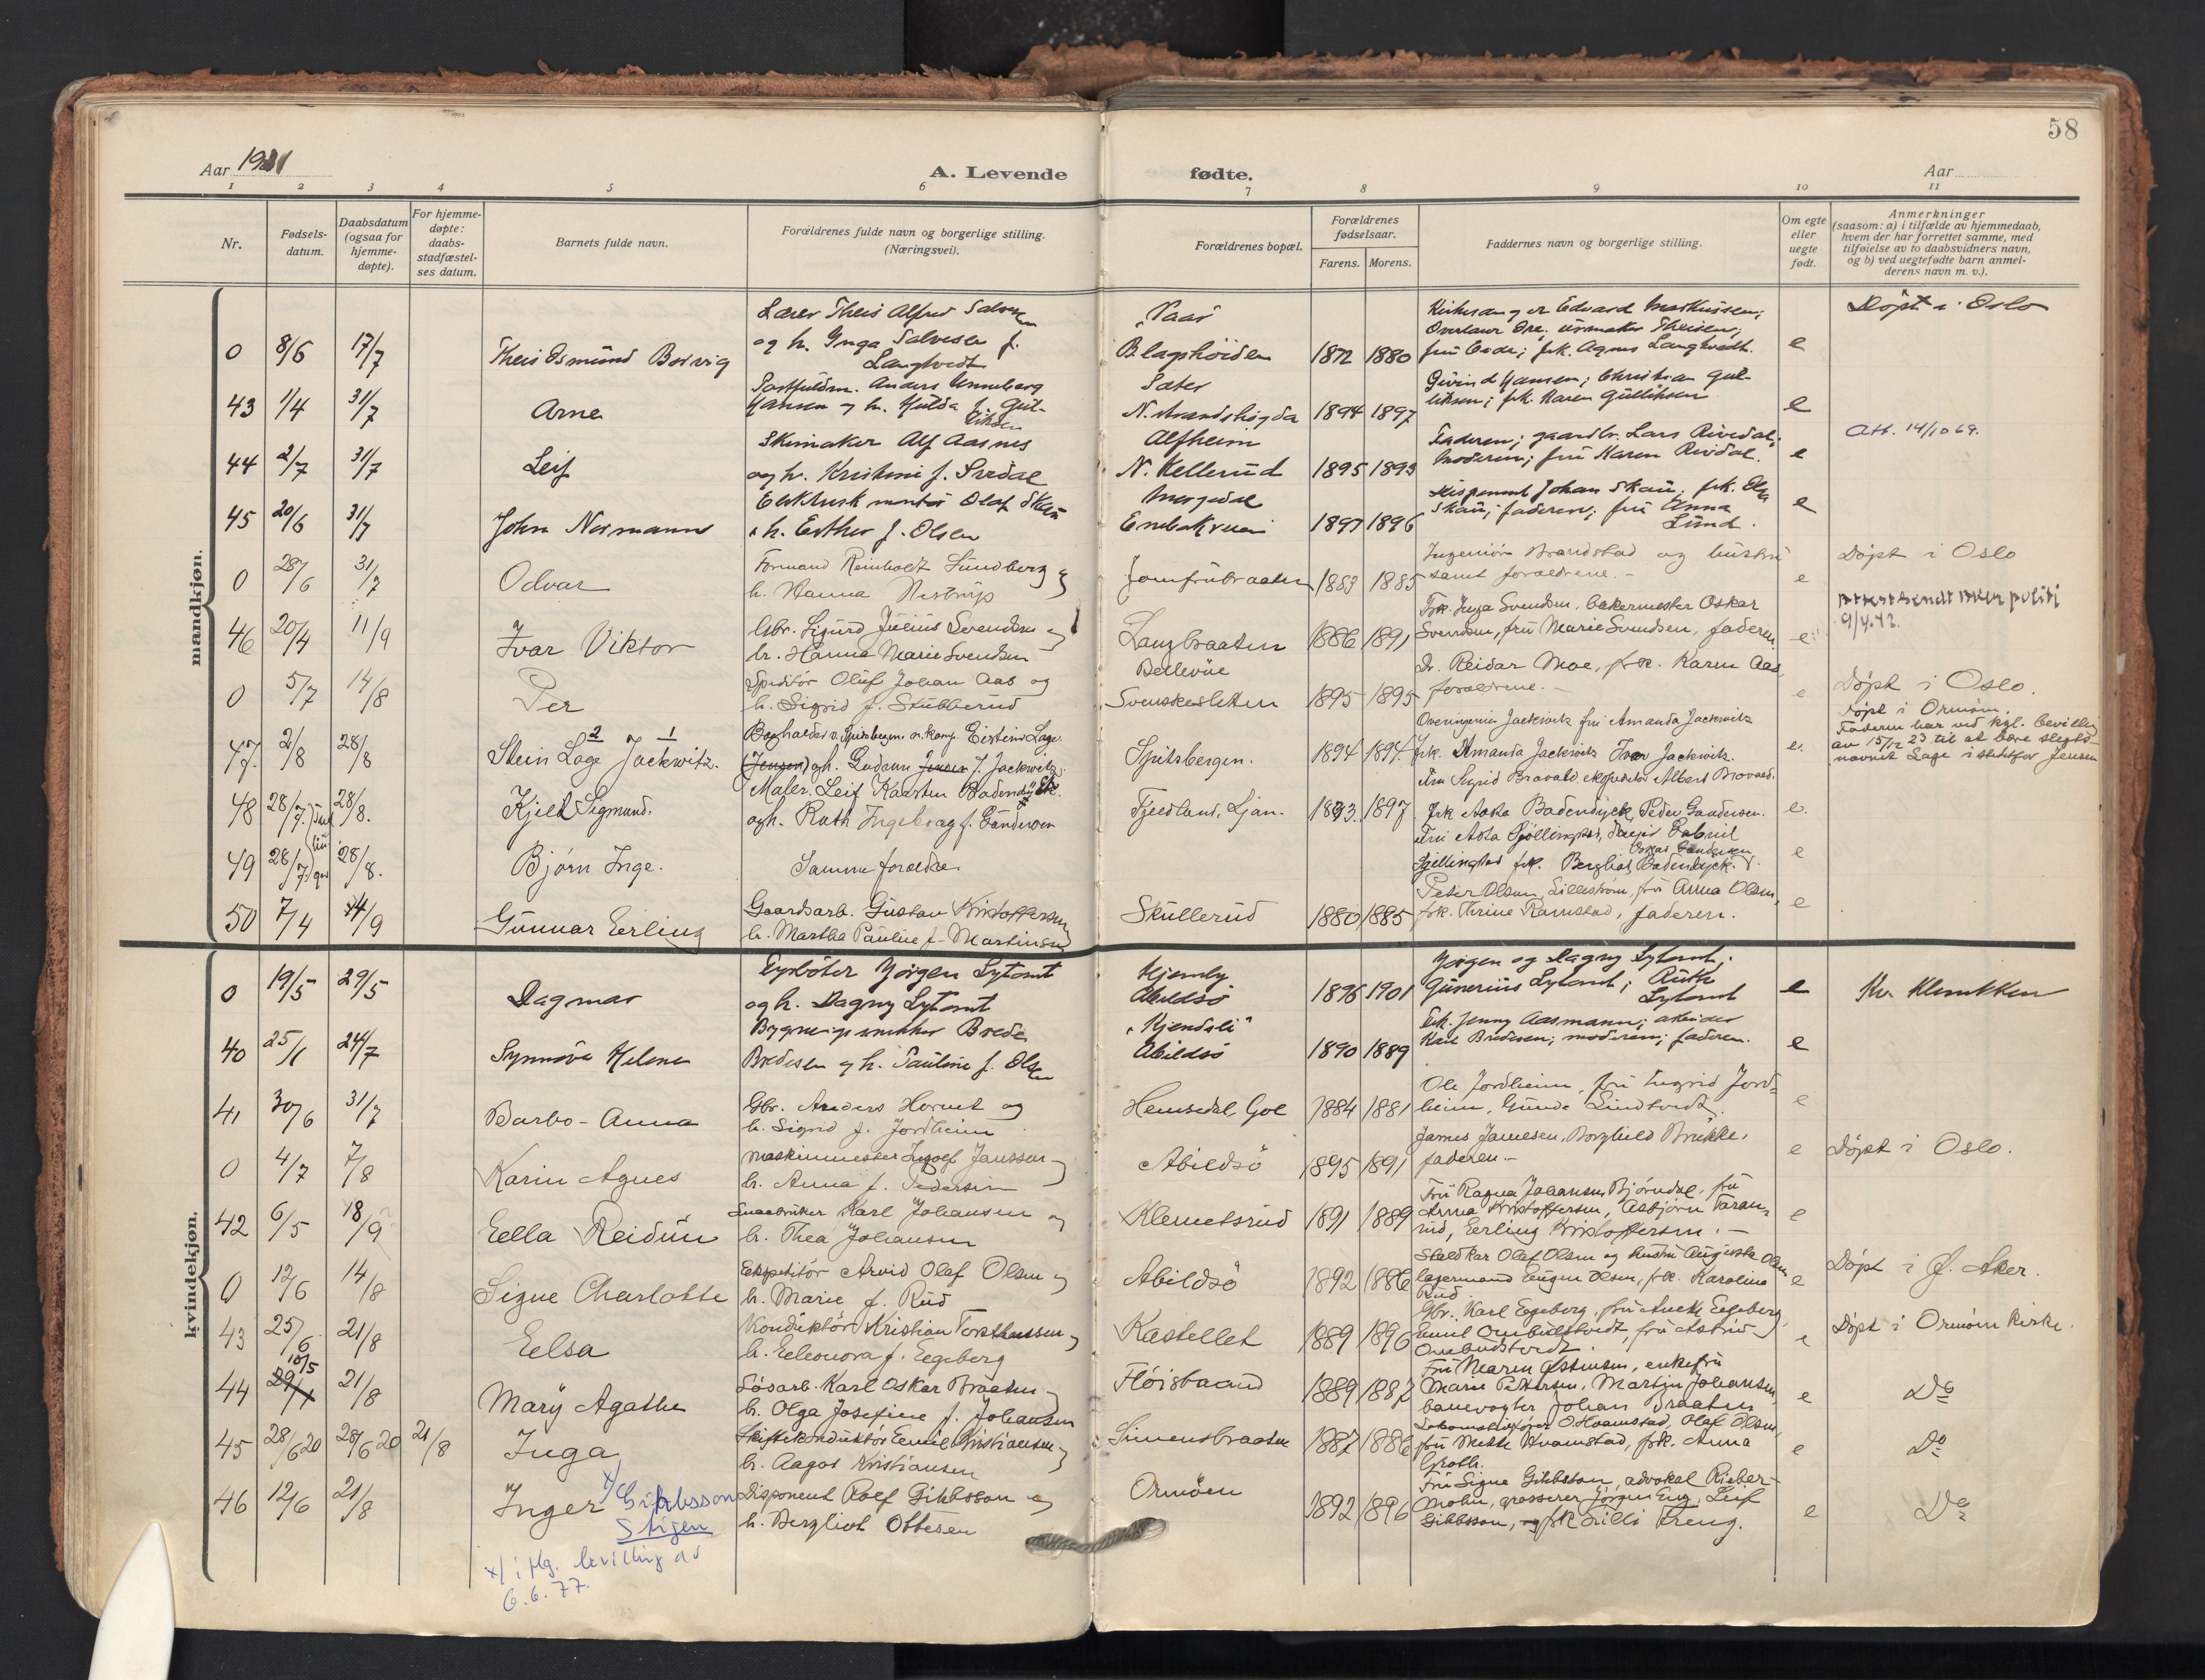 58
Aar 1921
A. Levende fødte.
Aar
1 2 3 4 5 6 7 8 9 10 11
Nr.
Fødsels-
datum.
Daabsdatum
(ogsaa for
hjemme-
døpte).
For hjemme-
døpte:
daabs-
stadfæstel-
ses datum.
Barnets fulde navn.
Forældrenes fulde navn og borgerlige stilling.
(Næringsvei).
Forældrenes bopæl.
Forældrenes
fødselsaar.
Farens. Morens.
Faddernes navn og borgerlige stilling.
Om egte
eller
uegte
født.
Anmerkninger
(saasom: a) i tilfælde av hjemmedaab,
hvem der har forrettet samme, med
tilføielse av to daabsvidners navn,
og b) ved uegtefødte barn anmel-
derens navn m. v.).
mandkjøn.
Lærer Theis Alfred Salvesen
og h. Inga Salvesen f.
Langtvedt
0 8/6 17/7 Theis Osmund Bosvig
1872 1880
frk. Agnes Langtvedt.
e
Døpt i Oslo
43 1/4 31/7 Arne
Postfuldm. Anders Unneberg
Hansen og h. Hulda f. Gul-
liksen
Sæter
N. Strandshøgda 1894 1897
Eivind Hansen; Christian Gul-
liksen; frk. Karen Gulliksen
e
44 2/7 31/7 Leif
Skimaker Alf Aasnes
og h. Kristine f. Svedal
Alfheim
N. Kellerud 1895 1893
Faderen; gaardbr. Lars Rivedal;
Moderen; fru Karen Rivdal.
e
Att. 14/10 69.
45 20/6 31/7 John Normann
Elektrisk montør Olaf Skau
h. Esther f. Olsen
Enebakveien 1897 1896
Disponent Johan Skau, frk. Elsa
Skau; faderen; fru Anna
Lund.
e
0 28/6 31/7 Odvar
Formand Reinholdt Lundberg og
h. Hanna Nestrup
Jomfrubraaten 1883 1885
Ingeniør Brandstad og hustru
samt forældrene. -
e
Døpt i Oslo
46 20/4 11/9 Ivar Viktor
Gbr. Sigurd Julius Svendsen og
h. Hanna Marie Svendsen
Langbraaten 1886 1891
Frk. Inga Svendsen, bakermester Oskar
Svendsen, fru Marie Svendsen, faderen.
e
9/4.42.
0 5/7 14/8 Per
Speditør Oluf Johan Aas og
h. Sigrid f. Stubberud
Bellevue
Svenskesletten 1895 1895
Dr. Reidar Moe, frk. Karen Aas,
forældrene. -
e
Døpt i Oslo.
47 2/8 28/8 Stein Lage Jackwitz.
2 1
Bogholder v. Spitsbergen komp. Eistein Lage
(Jensen) og h. Gudrun Jensen f. Jackwitz
Spitsbergen. 1894 1894
Overingeniør Jackwitz fru Amanda Jackwitz
frk. Amanda Jackwitz Ivar Jackwitz.
e.
Døpt i Ormøen.
Faderen har ved kgl. bevilling
av 15/12 23 til at bære slegts-
navnet Lage istedetfor Jensen
48 28/7 28/8. Kjeld Sigmund.
Maler Leif Karsten Badendyck
og h. Ruth Ingeborg f. Gundersen
Fjeldland, Ljan. 1893. 1897
Fru Sigrid Bravold, ekspeditør Albert Bravold.
frk Aasta Badendyck, Peder Gundersen.
e.
49 28/7 28/8. Bjørn Inge.
Samme forældre
Fru Asta Gjøllingstad,
Oskar Gundersen
frk. Bergliot Badendyck.
e
50 7/4 4/9 Gunnar Erling
Gaardsarb. Gustav Kristoffersen
h. Martha Pauline f. Martinsen
Skullerud 1880 1885
Peter Olsen, Lillestrøm, fru Anna Olsen,
frk. Thrine Ramstad, faderen.
e
kvindekjøn.
0 19/5 29/5 Dagmar
Fyrbøter Jørgen Sytomt
og h. Dagny Sytomt
Hjemly
Abildsø 1896 1901
Jørgen og Dagny Sytomt;
Gunerius Sytomt; Ruth
Sytomt
e
40 25/1 24/7 Synnøve Helene
Bygningssnekker Brede
Bredesen og h. Pauline f. Olsen
"Kjendsli"
Abildsø 1890 1889
Frk. Jenny Aasmann; arbeider
Karl Bredesen; moderen; faderen.
e
41 30/6 31/7 Barbo-Anna
Gbr. Anders Hornet og
h. Sigrid f. Jordheim
Hemsedal, Gol 1884 1881
Ole Jordheim, fru Ingrid Jord-
heim, Gunda Lindtvedt.
e
0 4/7 7/8 Karin Agnes
Maskinmester Ingolf Janssen
h. Anna f. Pedersen
Abildsø 1895 1891
James Jamesen, Borghild Brekke,
faderen. -
e
Døpt i Oslo.
42 6/5 18/9 Ella Reidun
Smaabruker Karl Johansen og
h. Thea Johansen
Klemetsrud 1891 1889
Fru Ragna Johansen, Bjørndal, fru
Anna Kristoffersen, Asbjørn Taran-
rud, Erling Kristoffersen. -
e
0 12/6 14/8 Signe Charlotte
Ekspeditør Arvid Olaf Olsen og
h. Marie f. Rud
Abildsø 1892 1886
Staldkar Olaf Olsen og hustru Augusta Olsen
lagermand Eugen Olsen, frk. Karoline
Rud
e
Døpt i Ø. Aker.
43 25/6 21/8 Elsa
Konduktør Kristian Torsthensen
h. Eleonora f. Egeberg
Kastellet 1889 1896
Gbr. Karl Egeberg, fru Anette Egeberg
Emil Ombudstvedt, fru Astrid
Ombudstvedt.
e
Døpt i Ormøen kirke.
10/5
44 29/4 21/8 Mary Agathe
Løsarb. Karl Oskar Braaten
h. Olga Josefine f. Johansen
Fløisbaand 1889 1887
Fru Maren Østensen, enkefru
Marie Pettersen, Martin Johansen,
banevogter Johan Braaten
e
Do
45 28/6 20 28/6 20 21/8 Inga
Skiftekonduktør Emil Kristiansen
h. Aagot Kristiansen
Simensbraaten 1887 1886
Lokomotivfører O. Hvamstad, Olaf Olsen,
fru Mette Hvamstad, frk. Anna
Groth.
e
Do
46 12/6 21/8 Inger x/ Gibbsson
Stigen
Disponent Rolf Gibbsson og
h. Bergliot Ottesen
Ormøen 1892 1896
Fru Signe Gibbsson, advokat Rieber-
Mohn, grosserer Jørgen Eng, Leif
Gibbsson, frk Lilli Preng.
e
Do
x/ i flg. bevilling av
6.6.77.